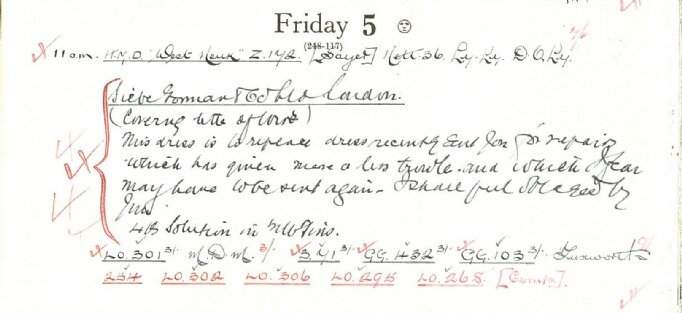 Friday 5
(248-117)
11 a.m. H.M.D. "West Neuk" Z.142. [Sayer] Nett 36. Ly. Ly. D.O. Ly.
Siebe Gorman & Co Ltd London.
(Covering letter of
This dress is to replace dress recently sent for repair
which has given more or less trouble and which I fear
may have to be sent again. I shall feel obliged by
4 Solution in Tins.
LO.301 3/- M.D.M. 3/- S.41 3/- GG.432 3/- GG.103 3/-
254 LO.302 LO.306 LO.295 LO.268